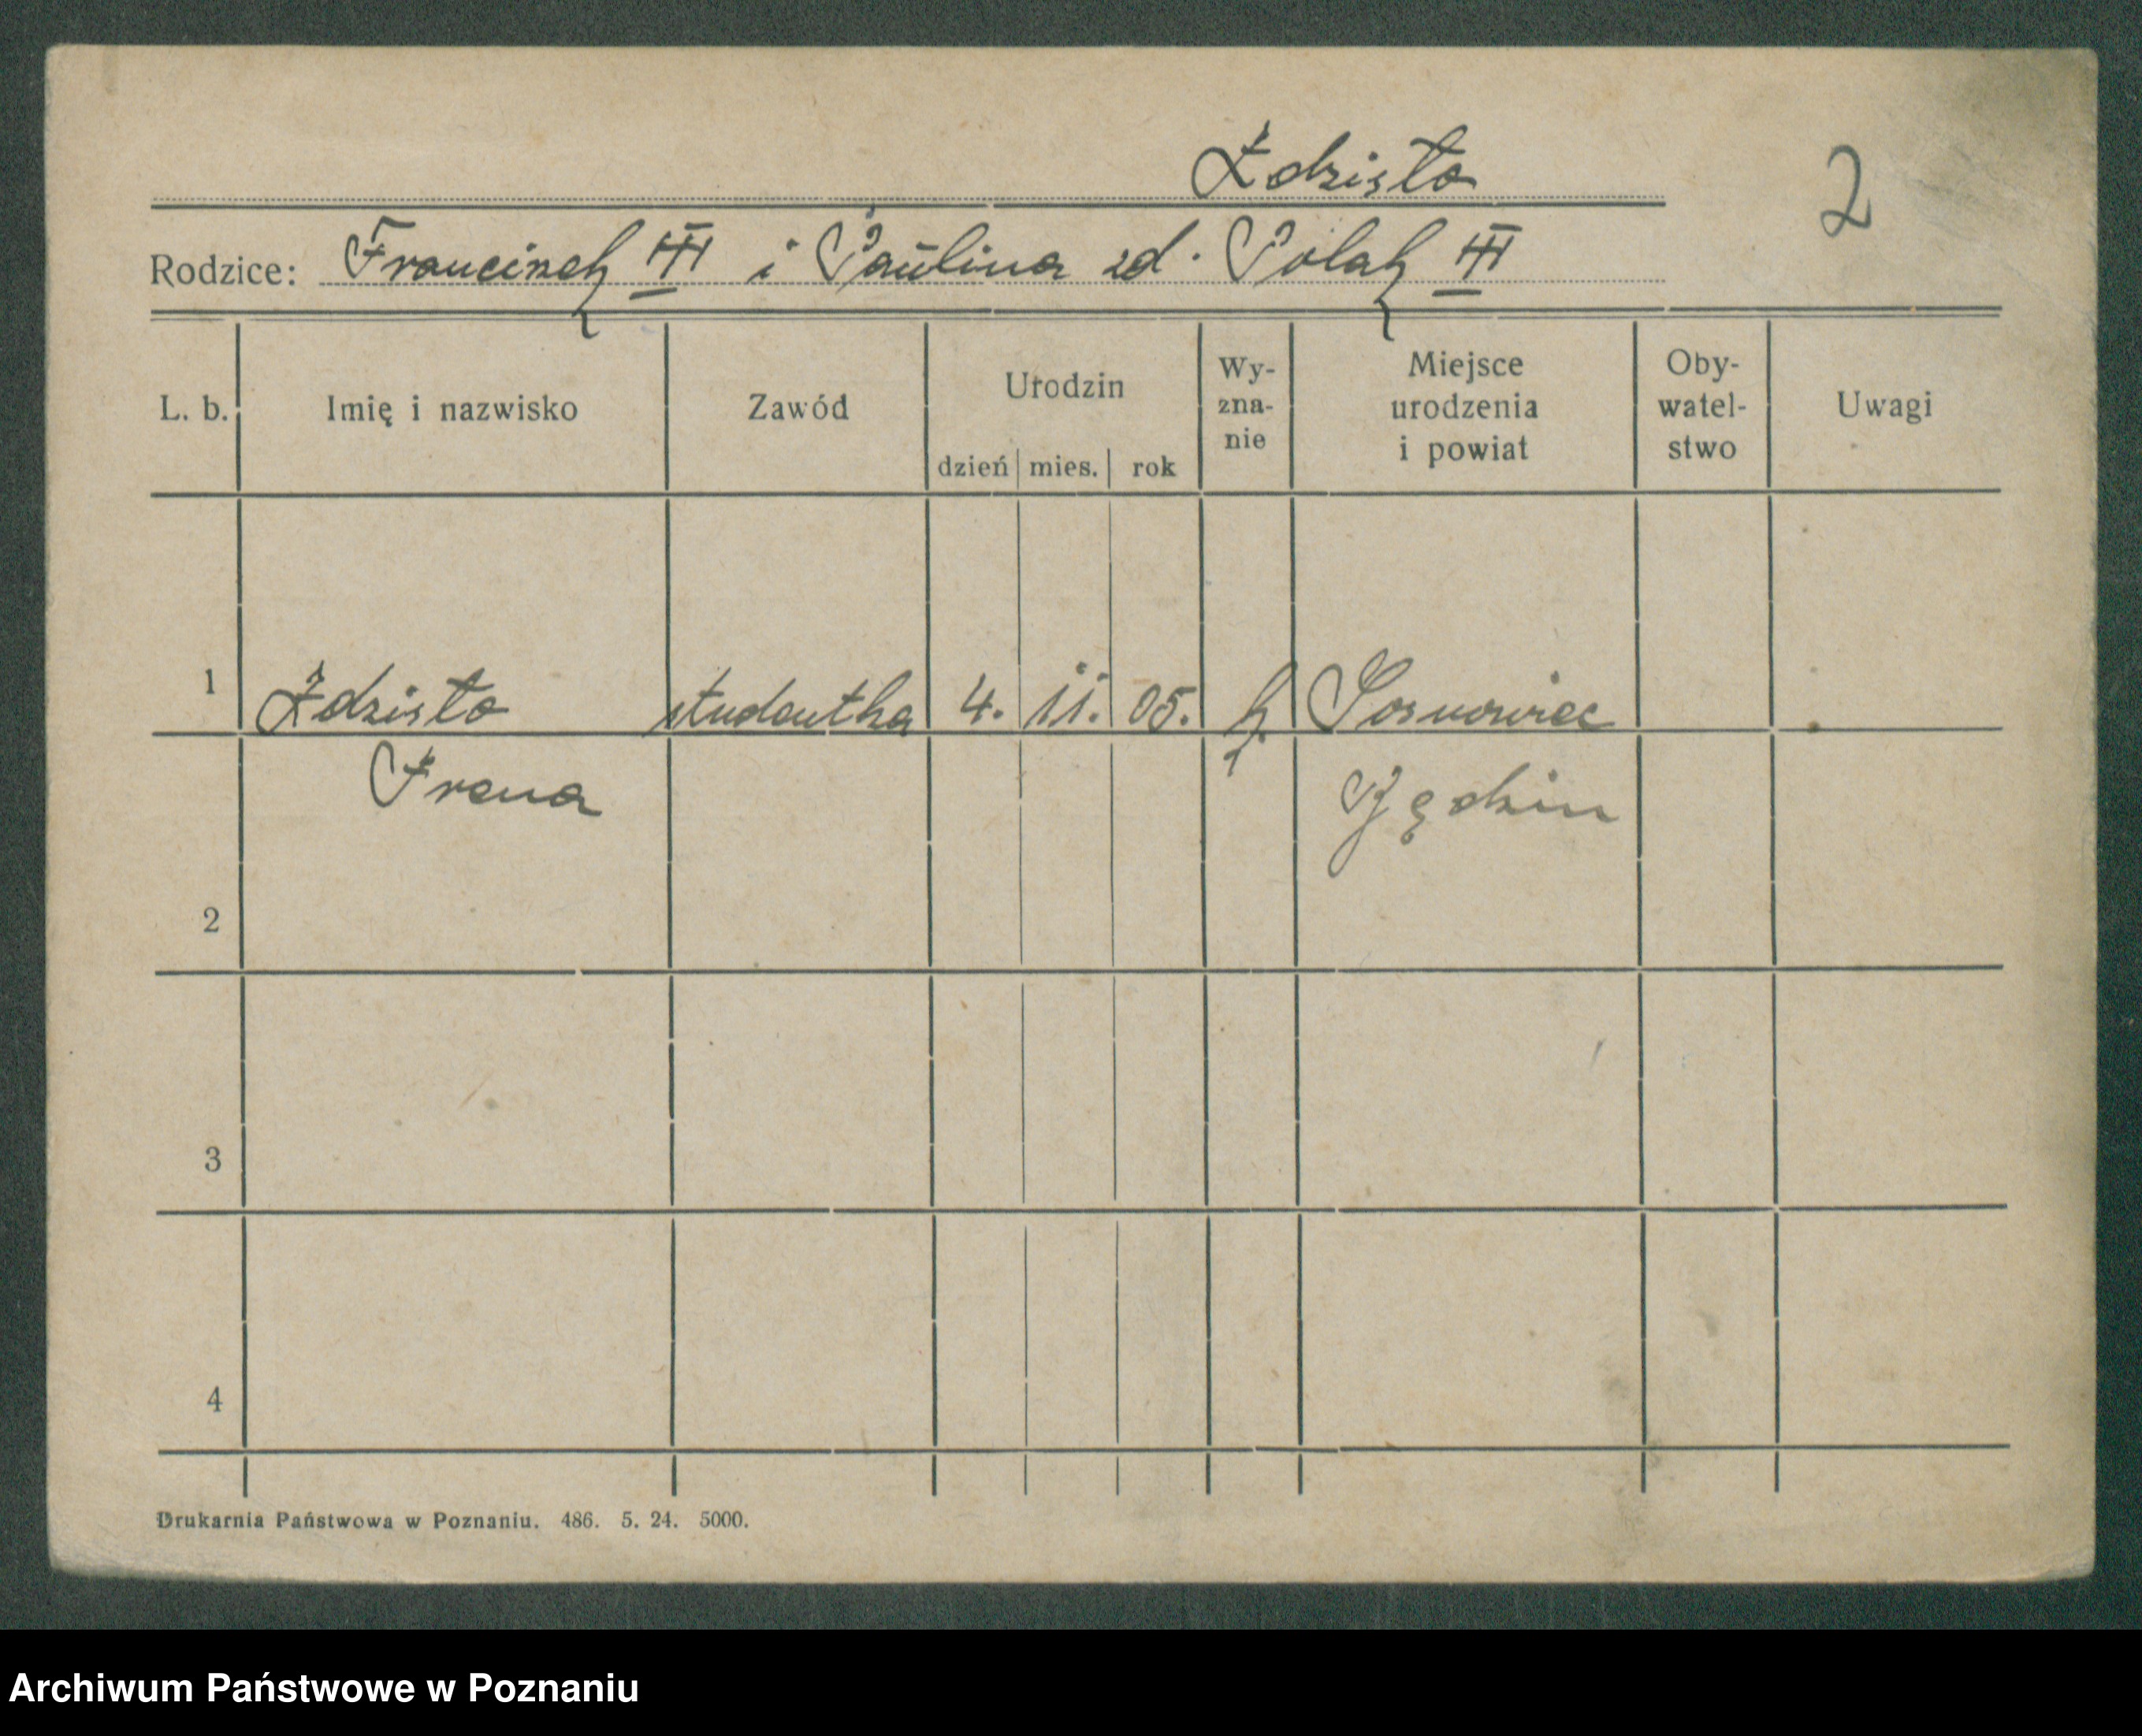 Ździsło
2
Rodzice: Franciszek III i Paulina zd. Polak III
L. b. Imię i nazwisko Zawód Urodzin dzień mies. rok Wy-zna-nie Miejsce urodzenia i powiat Oby-watel-stwo Uwagi
1 Ździsło studentka 4. 11. 05. k. Sosnowiec
Irena Będzin
2
3
4
Drukarnia Państwowa w Poznaniu. 486. 5. 24. 5000.
Archiwum Państwowe w Poznaniu